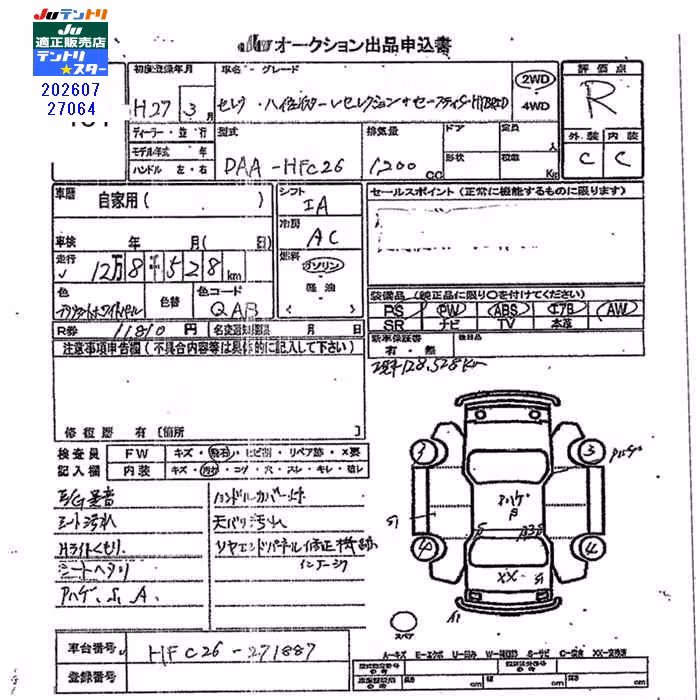 JUテントリ
JU
適正販売店
テントリ
★スター
202607
27064
オークション出品申込書
初度登録年月
H27 3月
車名・グレード
2WD
4WD
評価点
R
外装 内装
C C
ディーラー・並行
モデル年式 年
ハンドル 左・右
型式
DAA-HFC26
排気量
1200 CC
ドア
形状
定員
人
積載
Kg
車歴
自家用( )
車検 年 月( 日)
走行
12万8千528km
色
色替
色コード
QAB
シフト
IA
冷房
AC
燃料
ガソリン
軽油
セールスポイント(正常に機能するものに限ります)
装備品(純正品に限り○を付けてください)
PS PW ABS エアB AW
SR ナビ TV 本革
新車保証書
有・無
後日品
R券 11810円 名変期限 月 日
注意事項申告欄(不具合内容等は具体的に記入して下さい)
現 128,528Km
修復歴 有(箇所
検査員
記入欄
FW キズ・飛石・ヒビ割・リペア跡・X要
内装 キズ・内汚・コゲ・穴・スレ・キレ・破レ
E/G異音
シート汚れ
Hライトくもり
シートヘタリ
Aハゲ、S、A
ハンドルカバー
天バリ汚れ
リヤエンドパネル修正機跡
車台番号 HFC26-271887
登録番号
スペア
A1
A-キズ E-エクボ U-凹み W-補修跡 S-サビ C-腐食 XX-交換済
cm cm cm